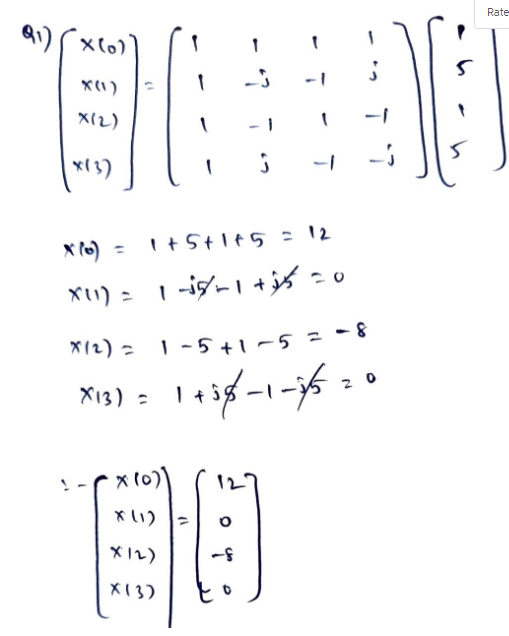 Rate
Q1) [x(0) x(1) x(2) x(3)] = [1 1 1 1; 1 -j -1 j; 1 -1 1 -1; 1 j -1 -j] [1 5 1 5]
x(0) = 1+5+1+5 = 12
x(1) = 1 -j5 -1 +j5 = 0
x(2) = 1 -5 +1 -5 = -8
x(3) = 1 +j5 -1 -j5 = 0
:- [x(0) x(1) x(2) x(3)] = [12 0 -8 0]